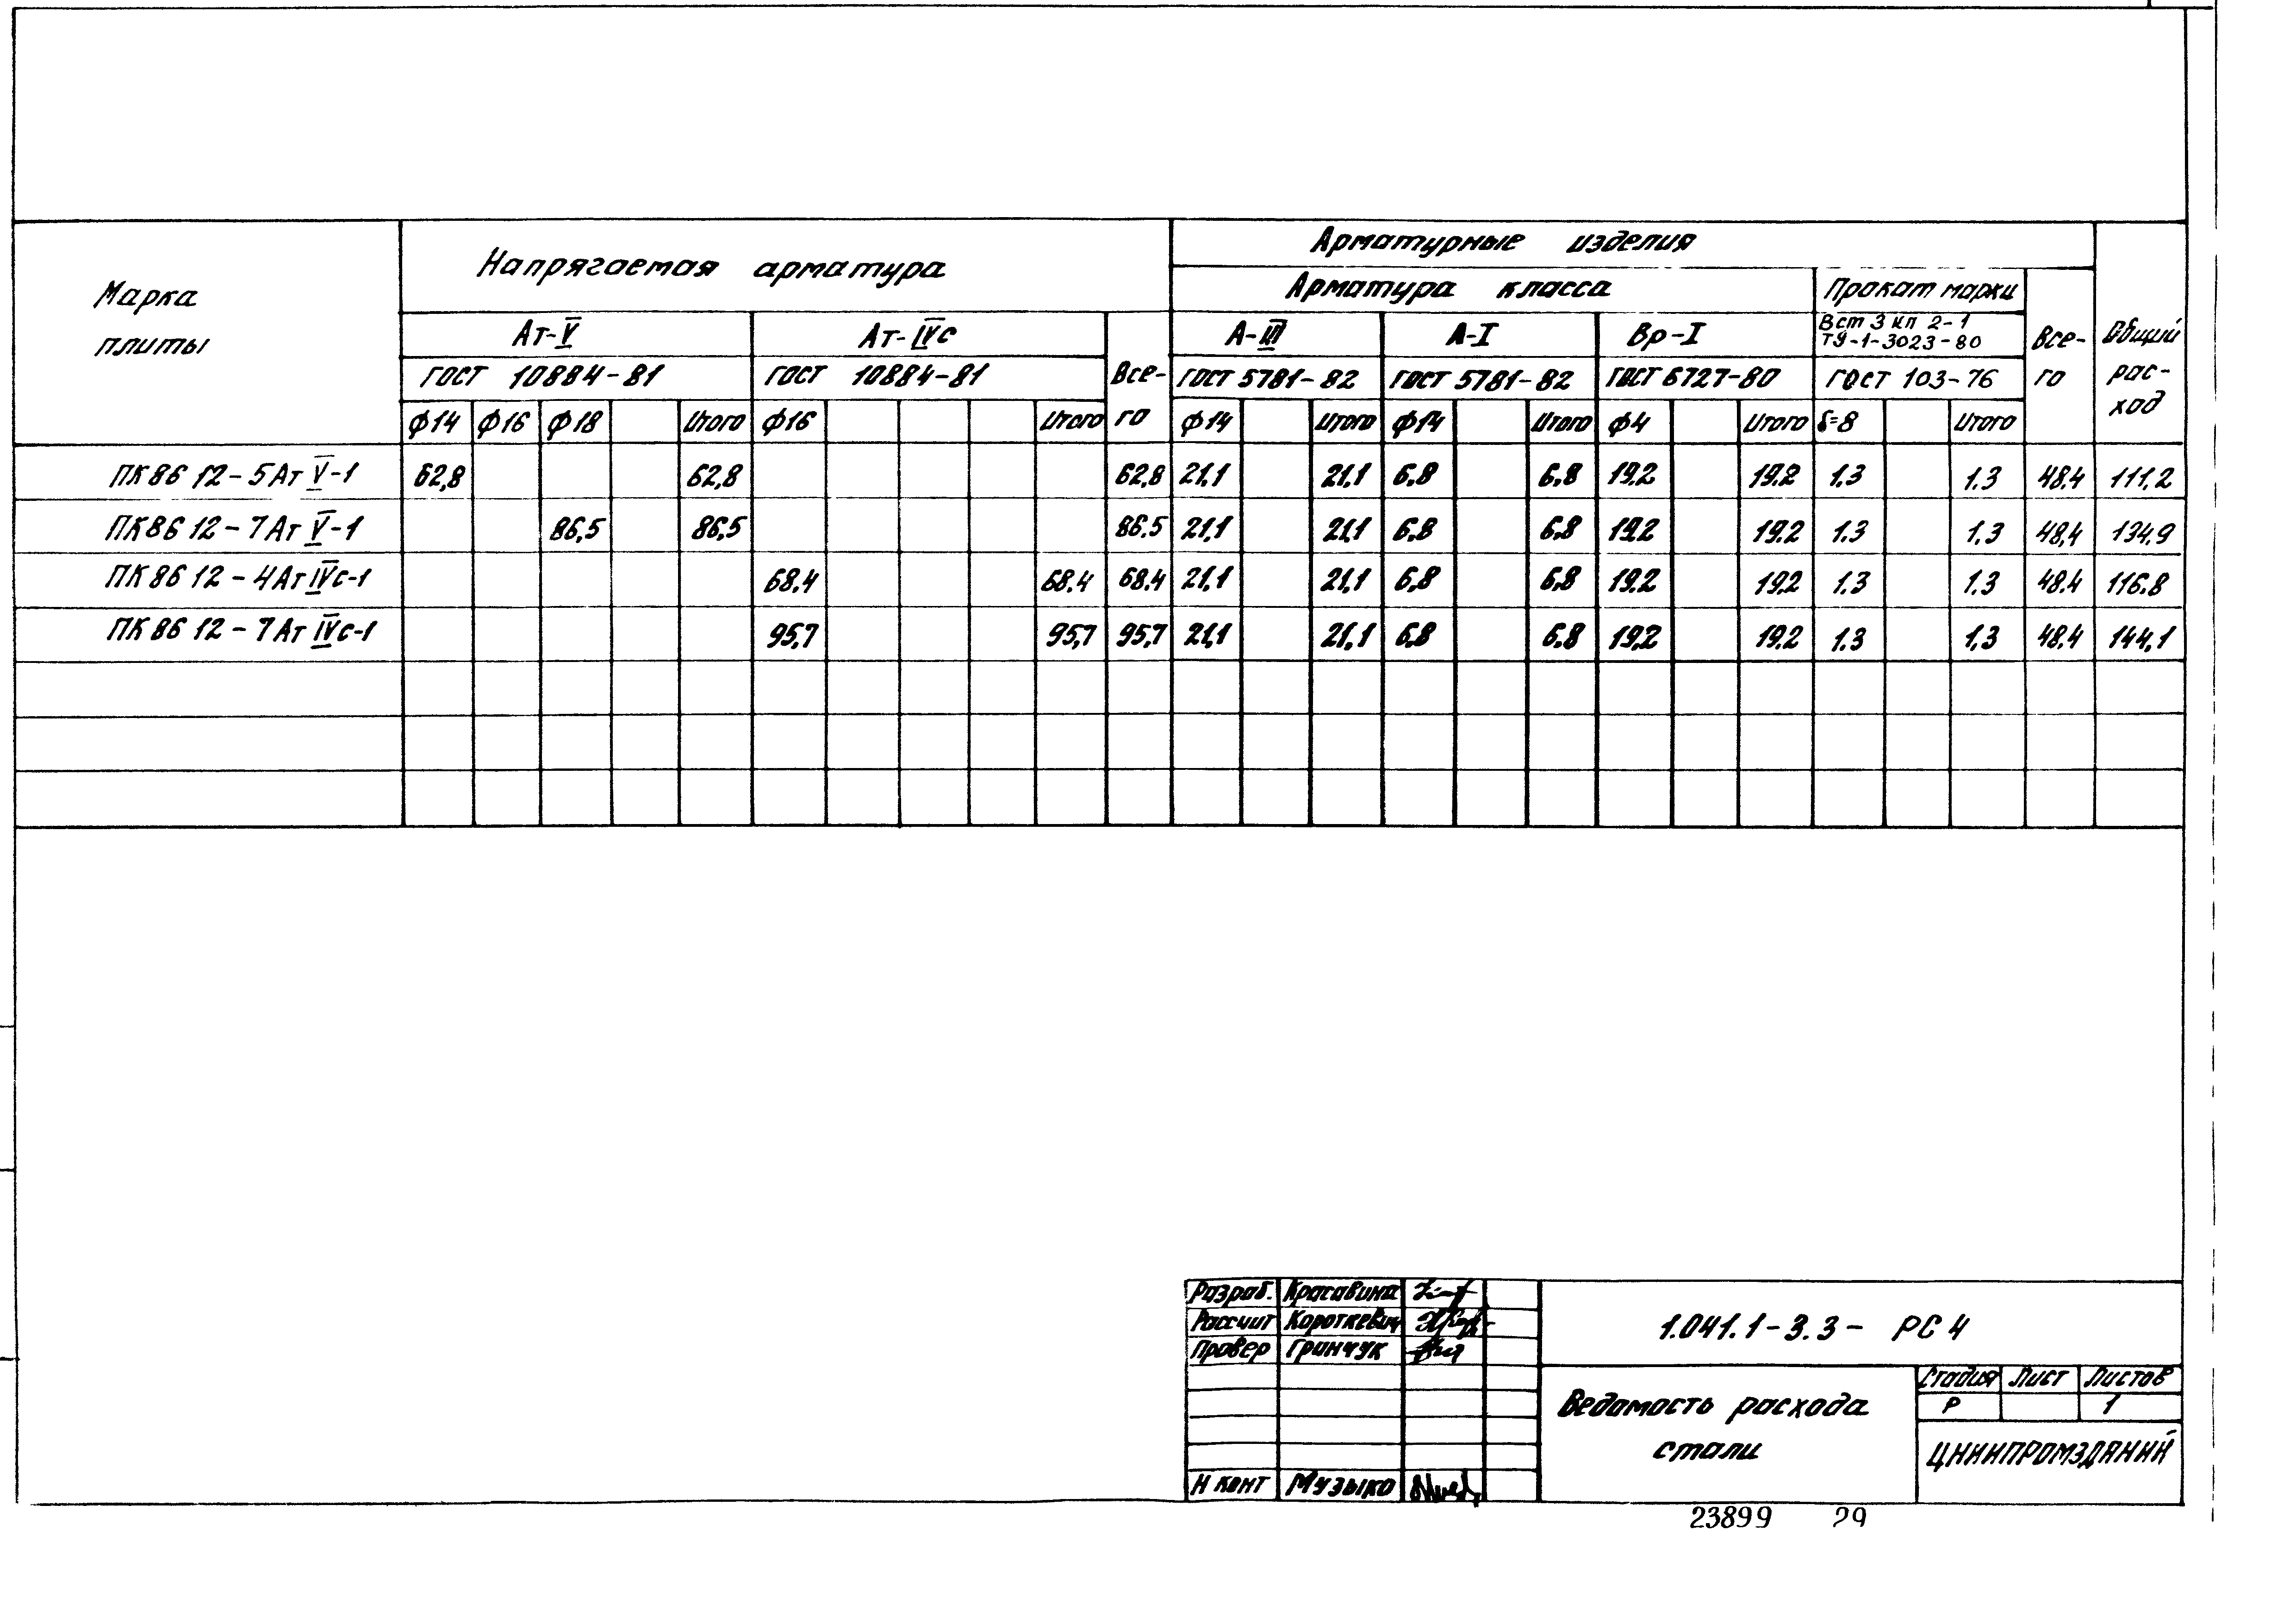 Марка плиты
Напрягаемая арматура
Арматурные изделия
Общий рас-ход
Арматура класса
Прокат марки
Все-го
Ат-V
Ат-IVс
Все-го
А-III
А-I
Вр-I
Вст 3 кп 2-1
ТУ-1-3023-80
ГОСТ 10884-81
ГОСТ 10884-81
ГОСТ 5781-82
ГОСТ 5781-82
ГОСТ 6727-80
ГОСТ 103-76
ф14 ф16 ф18 Итого ф16 Итого ф14 Итого ф14 Итого ф4 Итого δ=8 Итого
ПК86 12-5Ат V-1 62,8 62,8 62,8 21,1 21,1 6.8 6.8 19.2 19.2 1.3 1.3 48.4 111.2
ПК86 12-7Ат V-1 86,5 86,5 86.5 21,1 21,1 6.8 6.8 19.2 19.2 1.3 1.3 48,4 134,9
ПК86 12-4Ат IVс-1 68.4 68.4 68.4 21,1 21,1 6,8 6,8 19.2 19.2 1.3 1.3 48.4 116.8
ПК86 12-7Ат IVс-1 95,7 95,7 95,7 21,1 21,1 6,8 6.8 19,2 19.2 1.3 1,3 48.4 144,1
Разраб. Красавина
Рассчит Короткевич
Провер Гринчук
Н конт Музыко
1.041.1-3.3- РС 4
Ведомость расхода
стали
Стадия Лист Листов
Р 1
ЦНИИПРОМЗДАНИЙ
23899 29